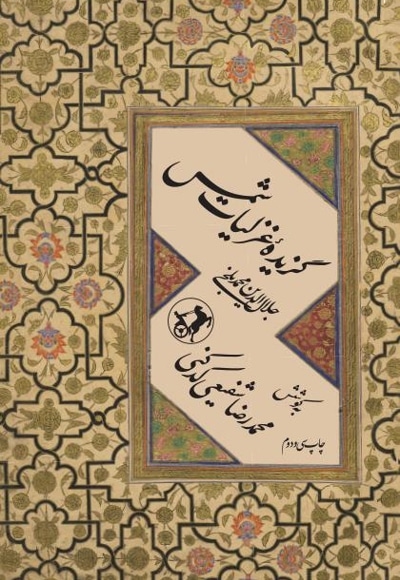 گزیدهٔ غزلیات شمس
جلال‌الدین محمد بلخی
به کوشش
محمدرضا شفیعی کدکنی
چاپ سی و دوم